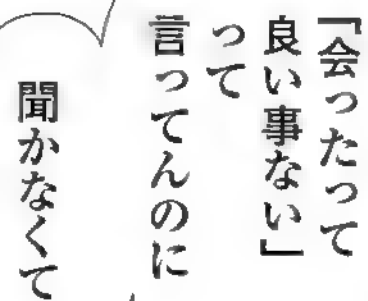 『会ったって
良い事ない』
って
言ってんのに
聞かなくて